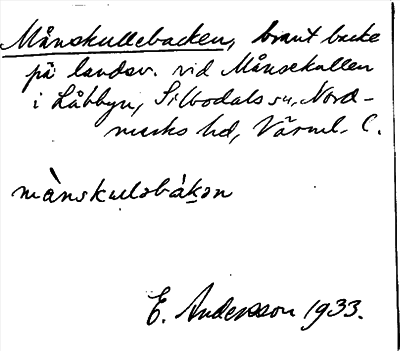 Månskullebacken, brant backe
på landsv. vid Månsekullen
i Låbbyn, Silbodals sn, Nord-
marks hd, Värml. l.
månskulsbàkən
E. Andersson 1933.